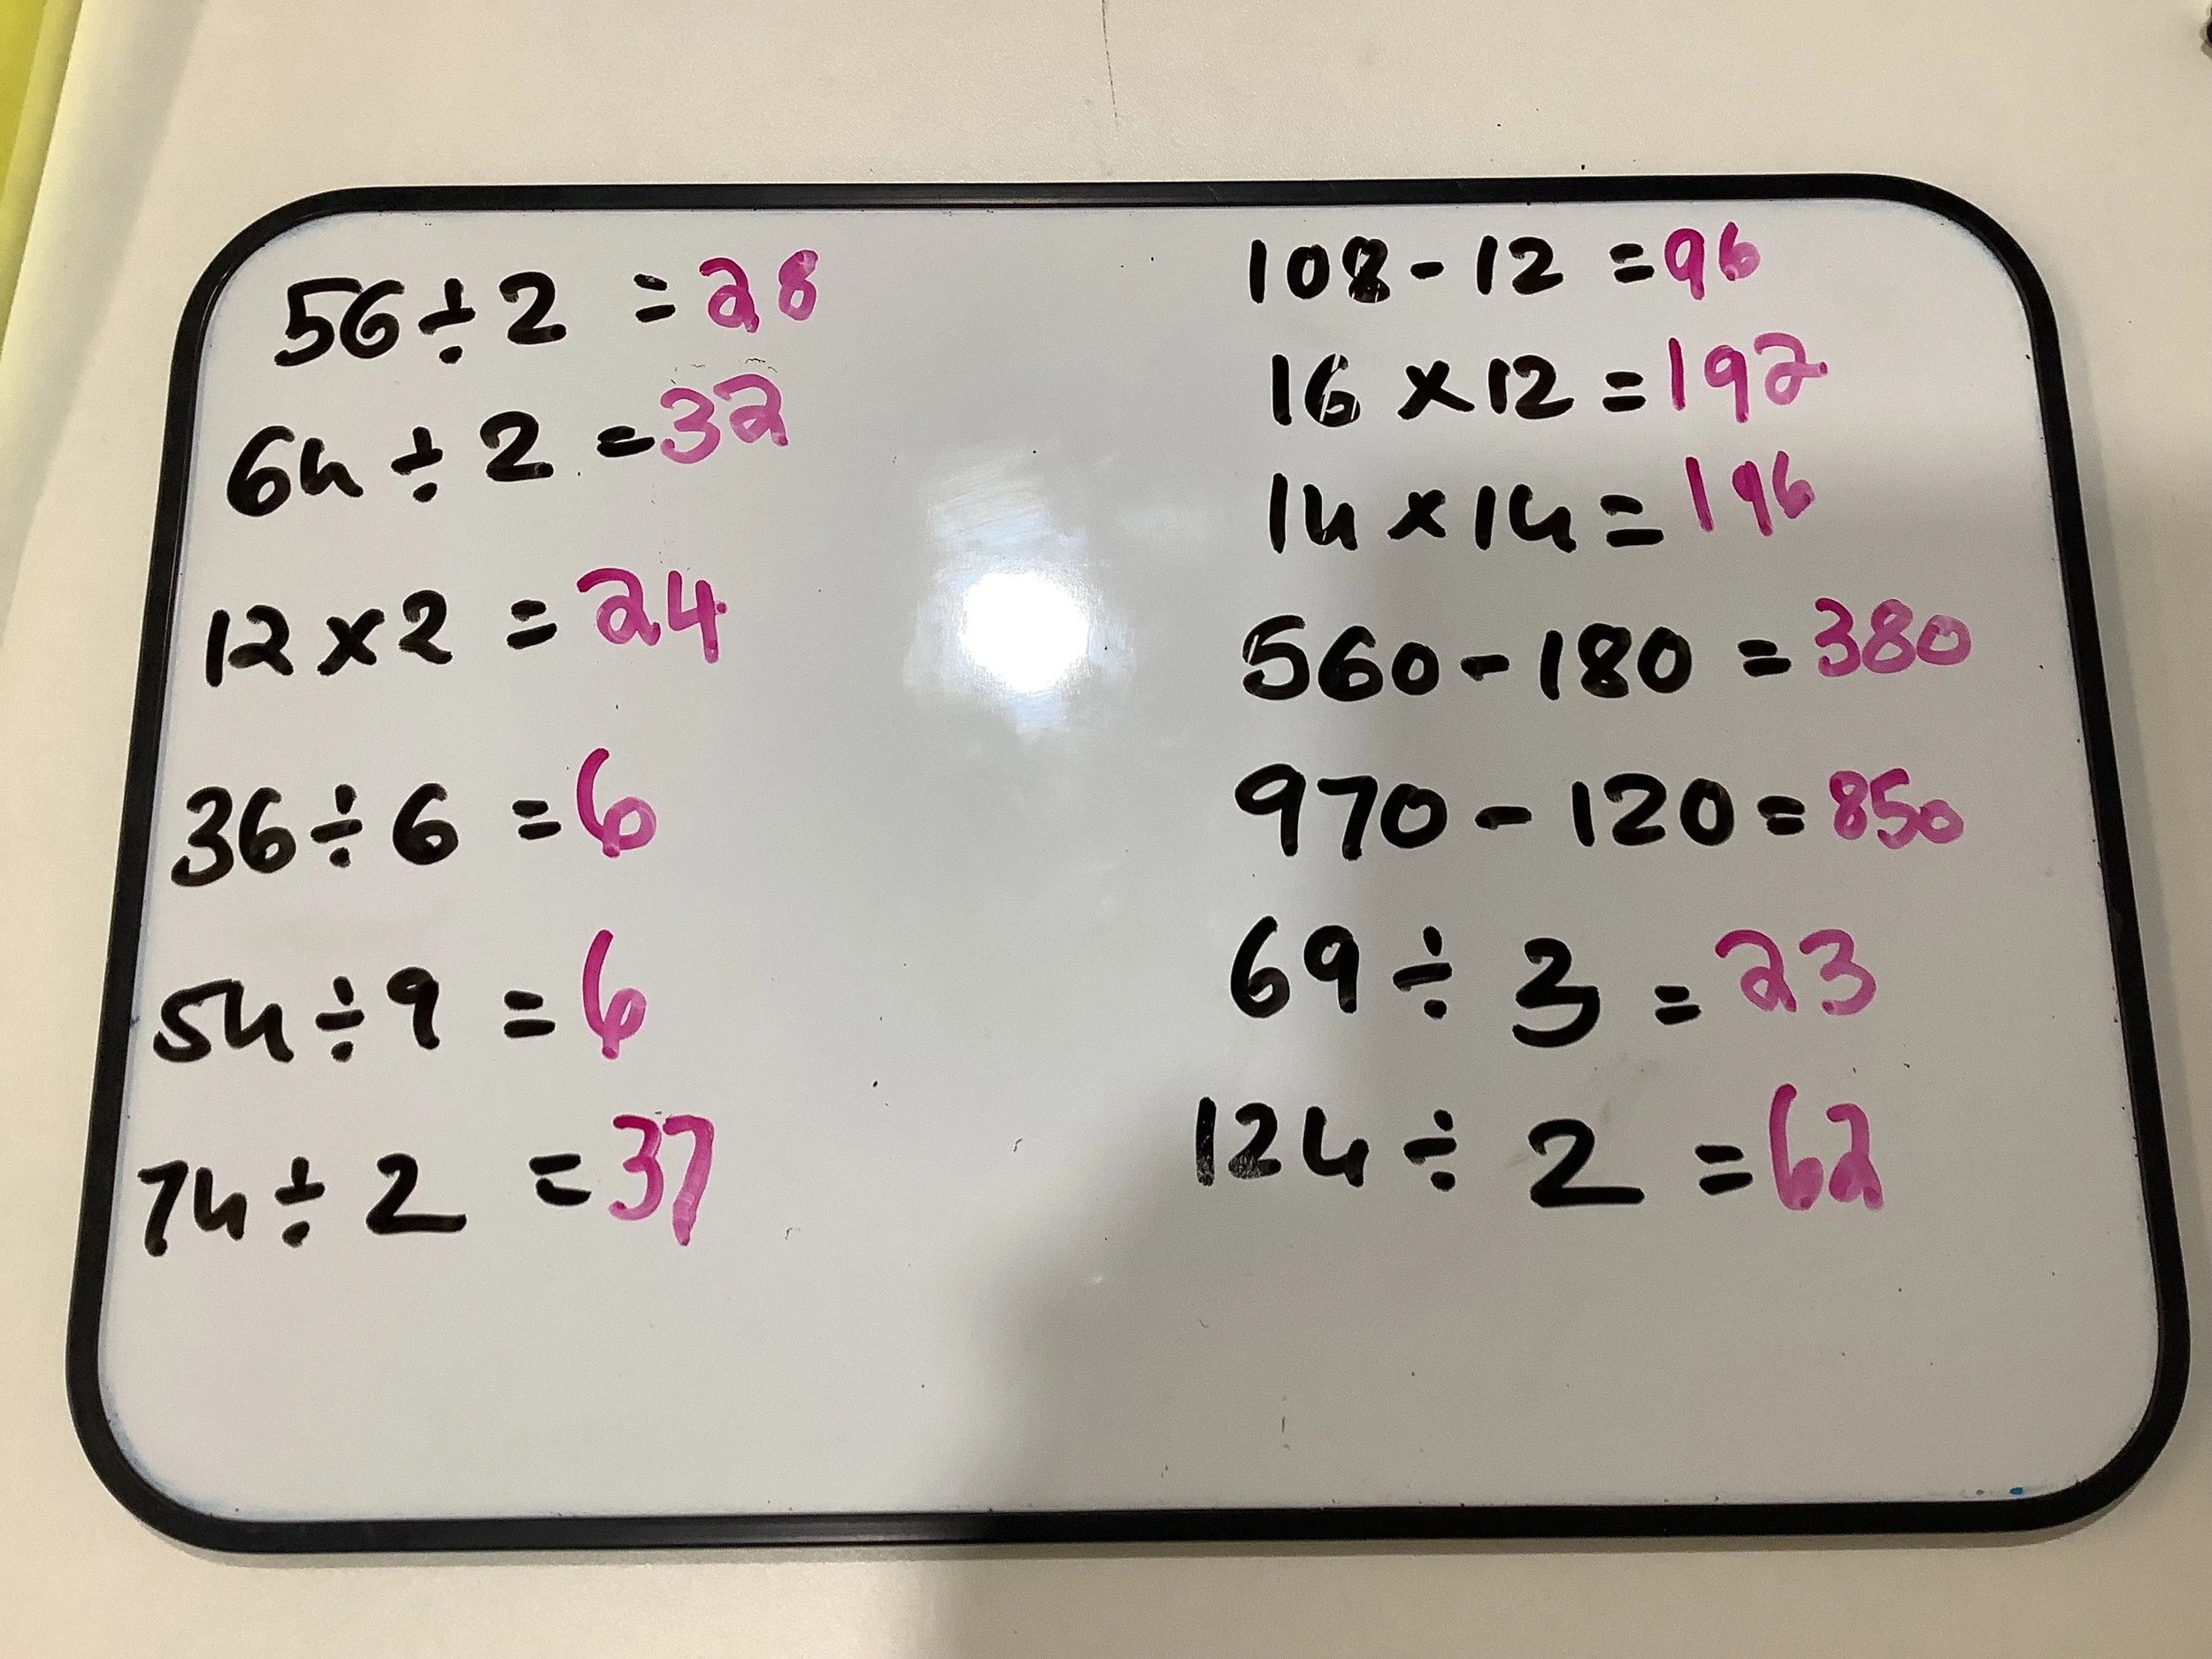 56 ÷ 2 = 28
64 ÷ 2 = 32
12 × 2 = 24
36 ÷ 6 = 6
54 ÷ 9 = 6
74 ÷ 2 = 37
108 - 12 = 96
16 × 12 = 192
14 × 14 = 196
560 - 180 = 380
970 - 120 = 850
69 ÷ 3 = 23
124 ÷ 2 = 62